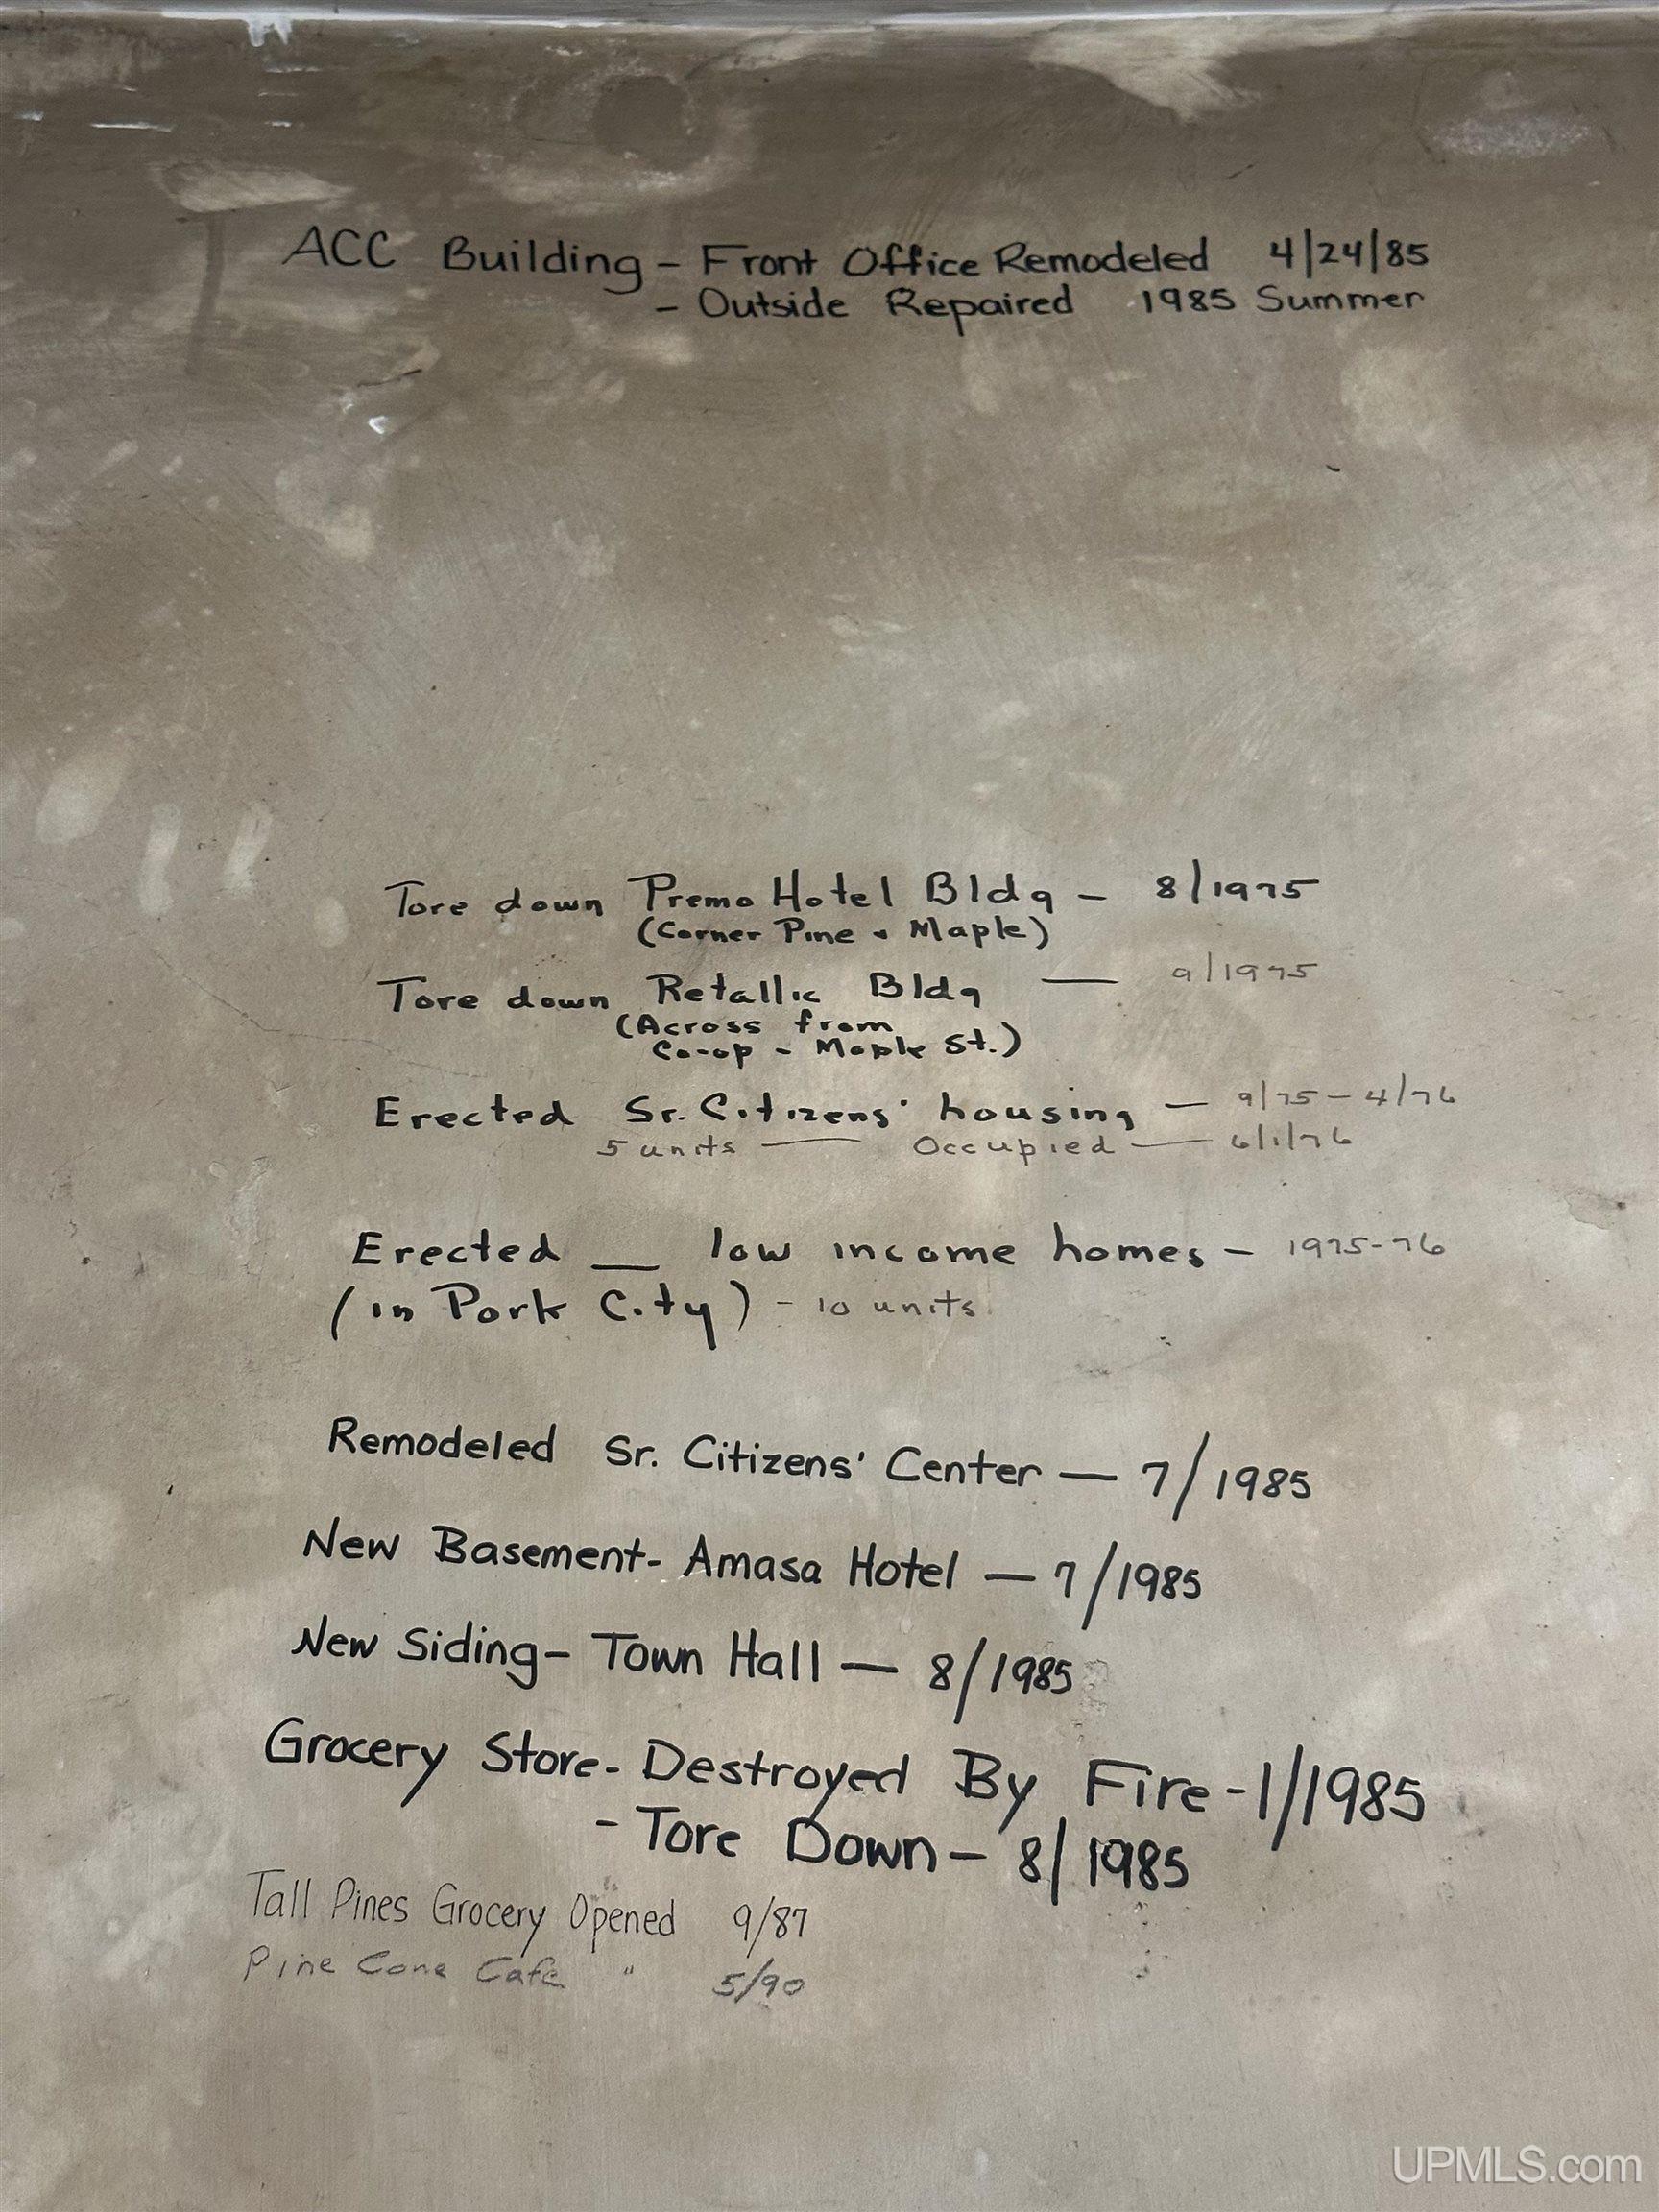 ACC Building - Front Office Remodeled 4/24/85
- Outside Repaired 1985 Summer
Tore down Premo Hotel Bldg - 8/1975
(Corner Pine & Maple)
Tore down Retallic Bldg — 9/1975
(Across from
Co-op - Maple St.)
Erected Sr. Citizens' housing — 9/75-4/76
5 units — Occupied — 6/1/76
Erected __ low income homes - 1975-76
(in Pork City) - 10 units
Remodeled Sr. Citizens' Center — 7/1985
New Basement - Amasa Hotel — 7/1985
New Siding - Town Hall — 8/1985
Grocery Store - Destroyed By Fire - 1/1985
- Tore Down - 8/1985
Tall Pines Grocery Opened 9/87
Pine Cone Cafe " 5/90
UPMLS.com